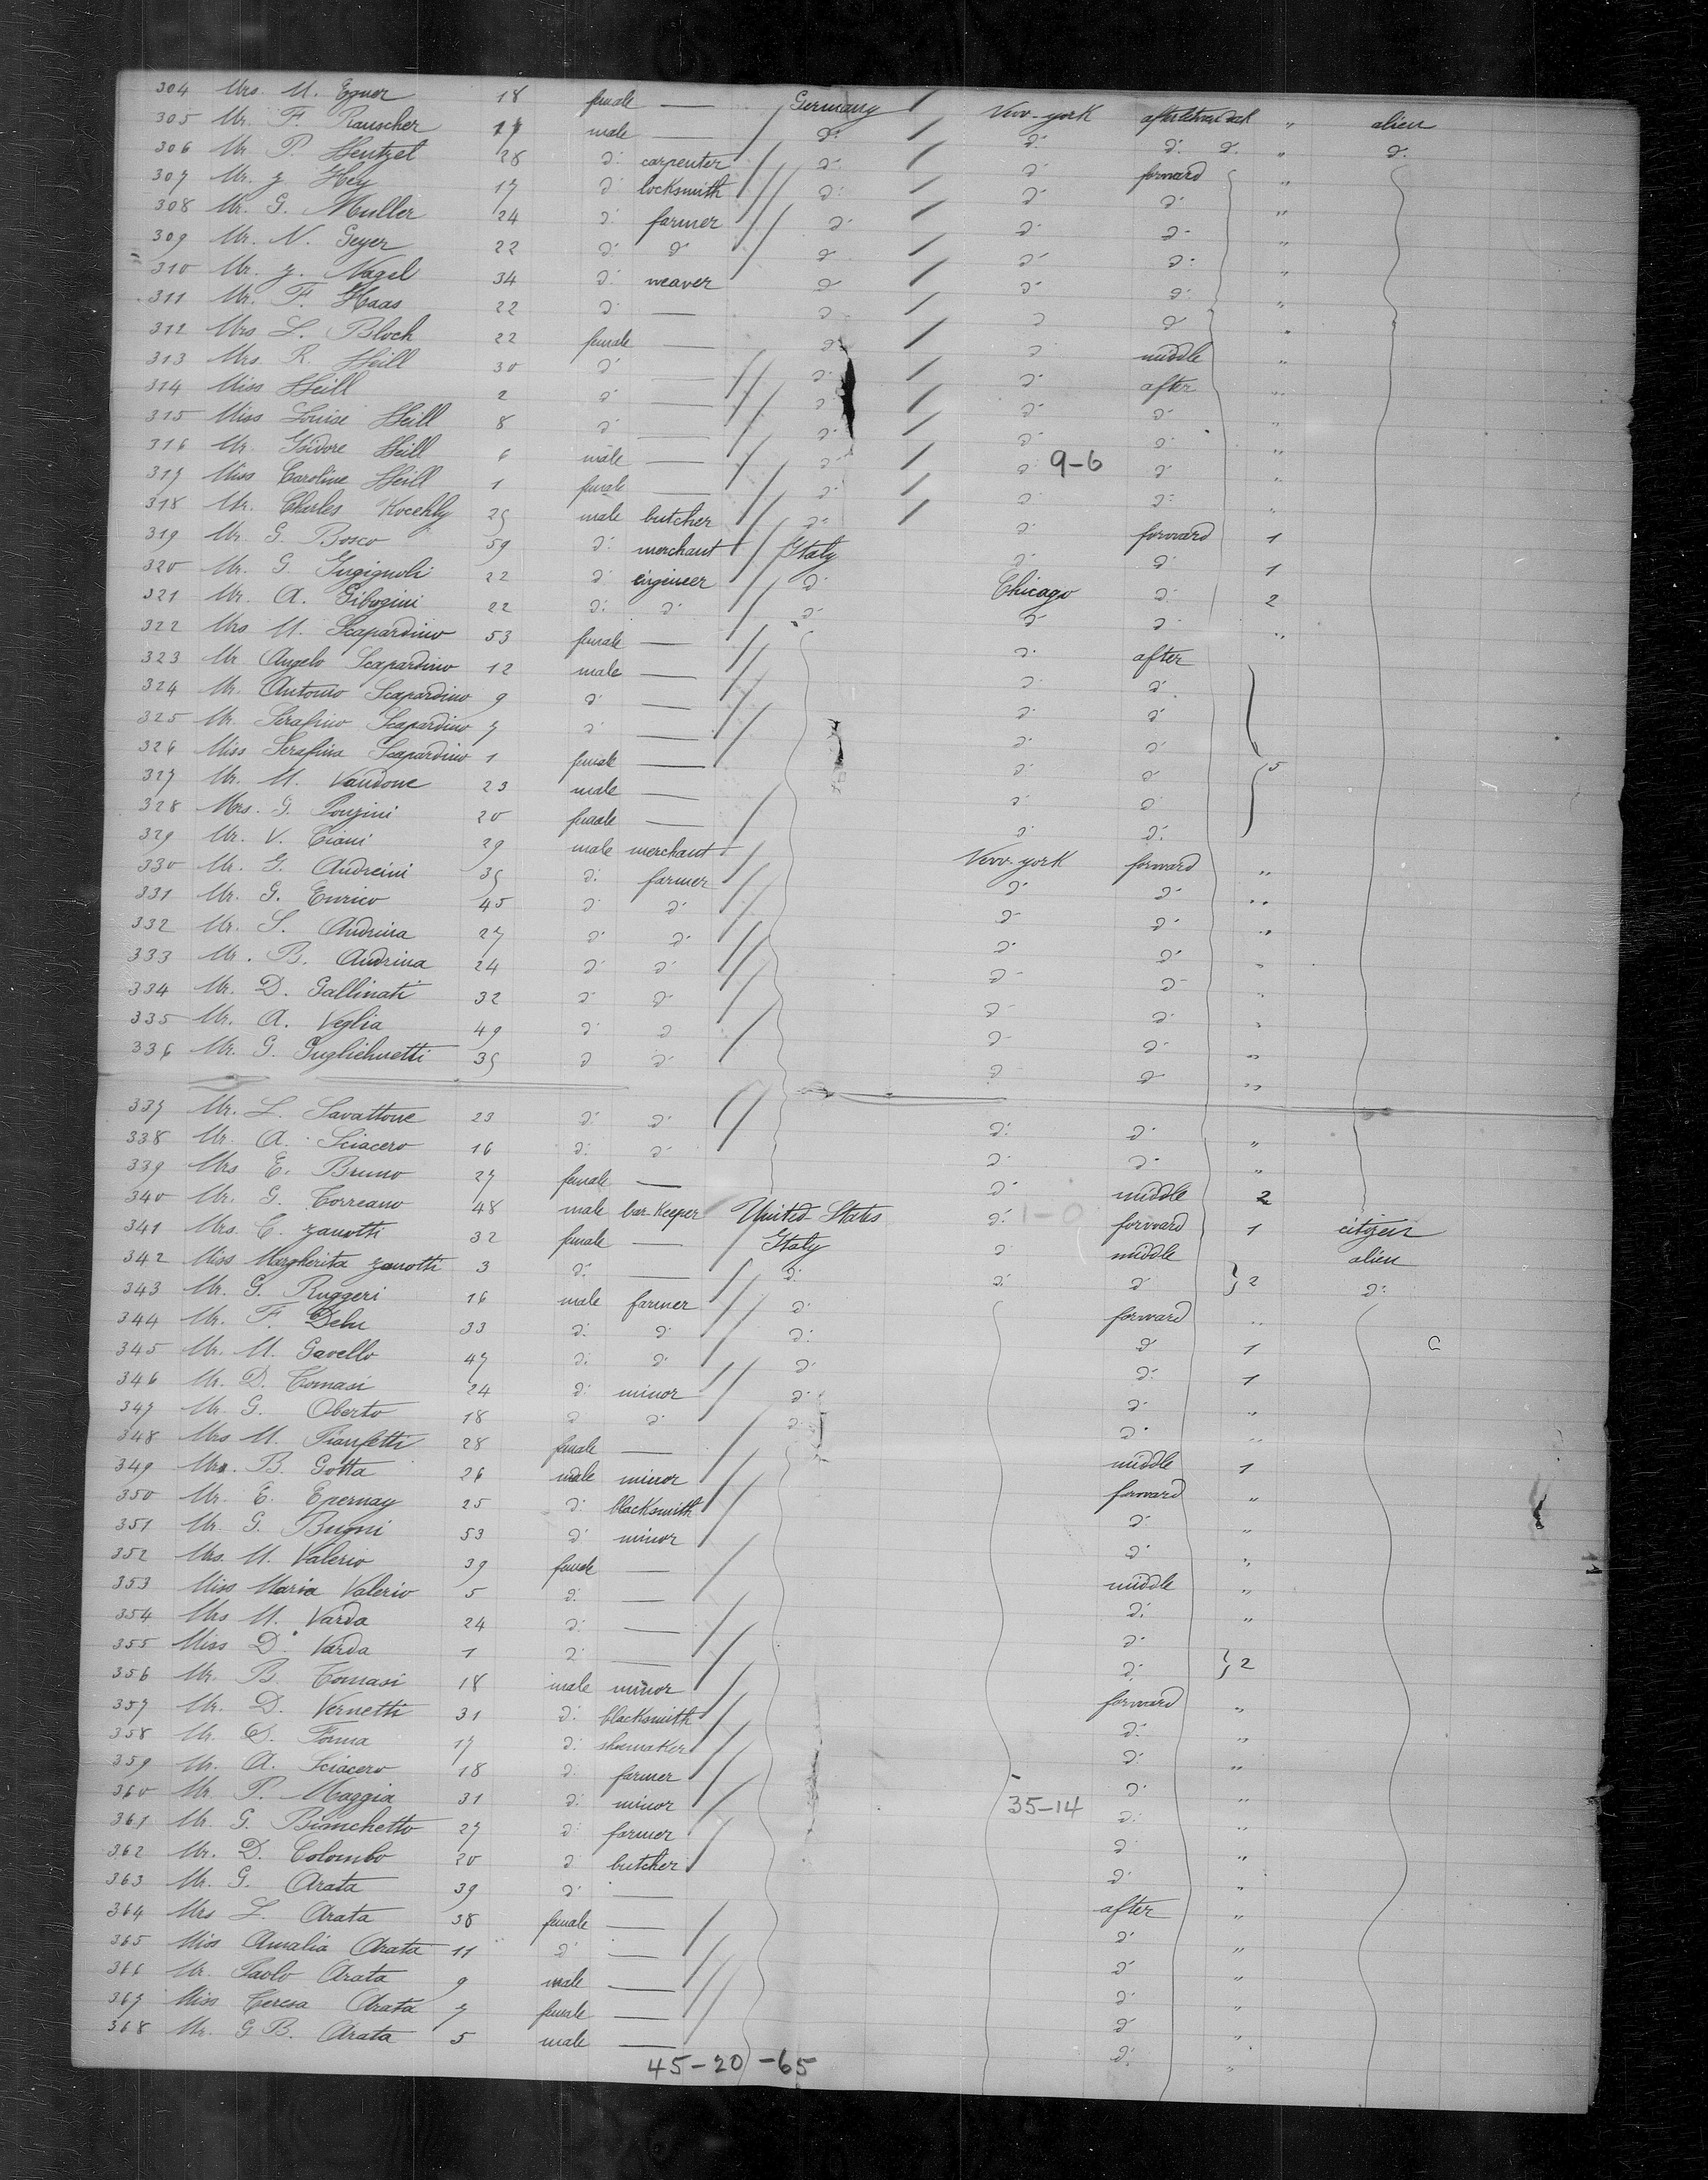 304 Mrs. M. Egner 18 female — Germany / New-york after between deck " alien
305 Mr. F. Rauscher male — d: / d: d: d. " d.
306 Mr. P. Hentzel 28 d: carpenter d: / d: forward "
307 Mr. J. Hey 17 d: locksmith d: / d: d: "
308 Mr. G. Muller 24 d: farmer d: / d: d: "
309 Mr. N. Geyer 22 d: d: d: / d: d: "
310 Mr. J. Nagel 34 d: weaver d: / d: d: "
311 Mr. F. Haas 22 d: — d: / d: d: "
312 Mrs. L. Bloch 22 female — d: / d: middle "
313 Mrs. R. Heill 30 d: — d: / d: after "
314 Miss Heill 2 d: — d: / d: d: "
315 Miss Louise Heill 8 d: — d: / d: d: "
316 Mr. Isidore Heill 6 male — d: / d: 9-6 d: "
317 Miss Caroline Heill 1 female — d: / d: d: "
318 Mr. Charles Koechly 25 male butcher d: / d: forward 1
319 Mr. G. Bosco 59 d: merchant Italy d: d: 1
320 Mr. G. 22 d: engineer d: Chicago d: 2
321 Mr. A. Gibogini 22 d: d: d: d: d: "
322 Mrs M. Scapardino 53 female — d: after
323 Mr. Angelo Scapardino 12 male — d: d:
324 Mr. Antonio Scapardino 9 d: — d: d:
325 Mr. Serafino Scapardino 7 d: — d: d:
326 Miss Serafina Scapardino 1 female — d: d: 5
327 Mr. M. Vaudone 23 male — d: d:
328 Mrs. G. Ponzini 20 female — d: d:
329 Mr. V. Ciani 29 male merchant New-york forward "
330 Mr. G. Andreini 35 d: farmer d: d: "
331 Mr. G. Enrico 45 d: d: d: d: "
332 Mr. S. Andrina 27 d: d: d: d: "
333 Mr. B. Andrina 24 d: d: d: d: "
334 Mr. D. Gallinati 32 d: d: d: d: "
335 Mr. A. Veglia 49 d: d: d: d: "
336 Mr. G. Guglielmetti 35 d: d: d: d: "
337 Mr. L. Savattone 23 d: d: d: d: "
338 Mr. A. Sciacero 16 d: d: d: d: "
339 Mrs E. Bruno 27 female — d: middle 2
340 Mr. G. Correano 48 male bar-Keeper United-States d: 1-0 forward 1 citizen
341 Mrs. C. Zanotti 32 female — Italy d: middle alien
342 Miss Margherita Zanotti 3 d: — d: d: d: } 2 d:
343 Mr. G. Ruggeri 16 male farmer d: forward "
344 Mr. F. Delu 33 d: d: d: d: 1
345 Mr. M. Gavello 47 d: d: d: d: 1
346 Mr. D. Tomasi 24 d: minor d: d: "
347 Mr. G. Oberto 18 d: d: d: d: "
348 Mrs M. Pianfetti 28 female — middle 1
349 Mr. B. Gotta 26 male minor forward "
350 Mr. E. Epernay 25 d: blacksmith d: "
351 Mr. G. Bugni 53 d: minor d: "
352 Mrs. M. Valerio 39 female — middle "
353 Miss Maria Valerio 5 d: — d: "
354 Mrs M. Varda 24 d: — d:
355 Miss D. Varda 1 d: — d: } 2
356 Mr. B. Tomasi 18 male minor forward "
357 Mr. D. Vernetti 31 d: blacksmith d: "
358 Mr. Forma 17 d: shoemaker d: "
359 Mr. A. Sciacero 18 d: farmer d: "
360 Mr. P. Maggia 31 d: minor 35-14 d: "
361 Mr. G. Bianchetto 27 d: farmer d: "
362 Mr. D. Colombo 20 d: butcher d: "
363 Mr. G. Arata 39 d: — after "
364 Mrs L. Arata 38 female — d: "
365 Miss Amalia Arata 11 d: — d: "
366 Mr. Paolo Arata 9 male — d: "
367 Miss Teresa Arata 7 female — d: "
368 Mr. G B. Arata 5 male — d: "
45-20-65